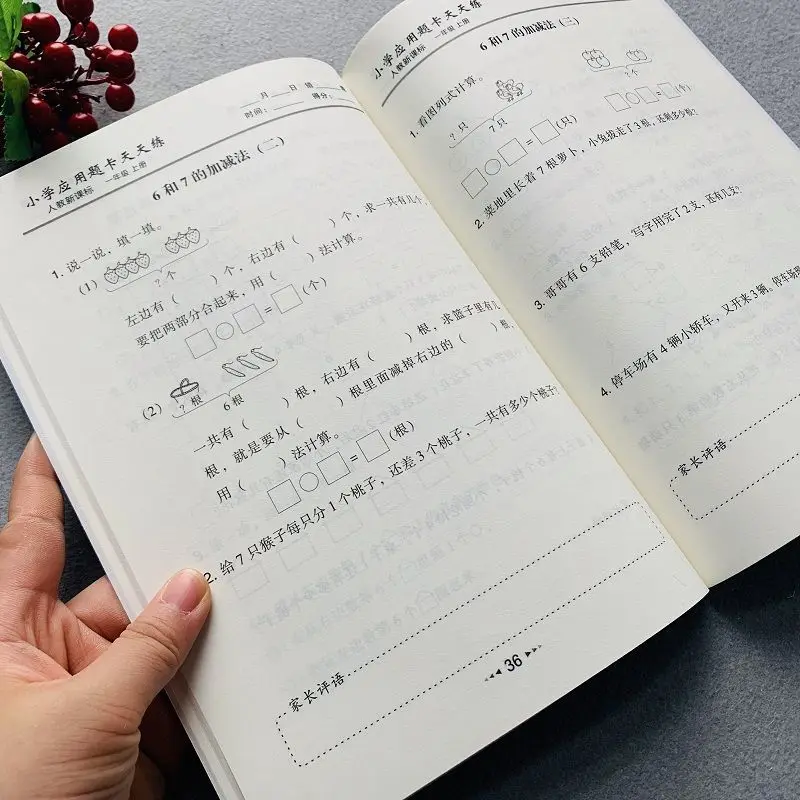 小学应用题卡天天练
人教新课标 一年级 上册
月 日
时间： 得分：
6 和 7 的加减法（二）
1. 说一说，填一填。
(1)
? 个
左边有（ ）个，右边有（ ）个，求一共有几个，
要把两部分合起来，用（ ）法计算。
□○□=□(个)
(2)
? 根 6 根
一共有（ ）根，右边有（ ）根，求篮子里有几
根，就是要从（ ）根里面减掉右边的（ ）根，
用（ ）法计算。
□○□=□(根)
2. 给 7 只猴子每只分 1 个桃子，还差 3 个桃子，一共有多少个桃子?
家长评语
36
小学应用题卡天天练
人教新课标 一年级 上册
6 和 7 的加减法（三）
1. 看图列式计算。
? 只
7 只
□○□=□(只)
? 个
□○□=□(个)
2. 菜地里长着 7 根萝卜，小兔拔走了 3 根，还剩多少根?
3. 哥哥有 6 支铅笔，写字用完了 2 支，还有几支?
4. 停车场有 4 辆小轿车，又开来 3 辆。停车场
家长评语